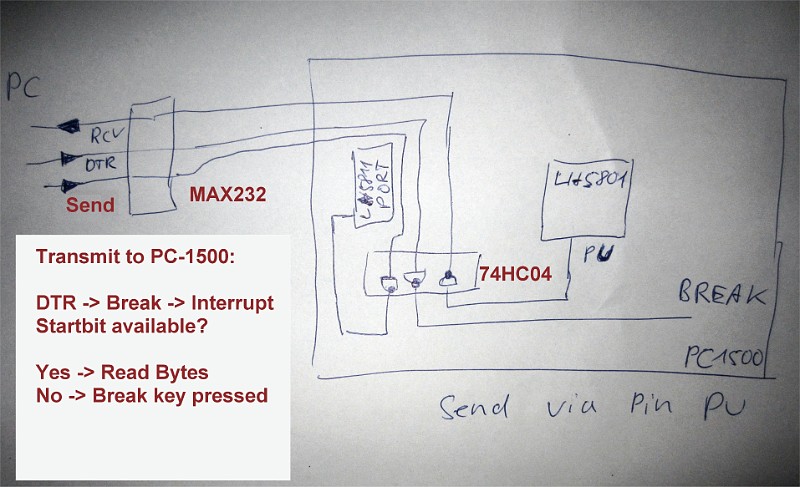 PC
RCV
DTR
Send
MAX232
LH5811
PORT
LH5801
PU
74HC04
BREAK
PC1500
Send via Pin PU
Transmit to PC-1500:
DTR -> Break -> Interrupt
Startbit available?
Yes -> Read Bytes
No -> Break key pressed